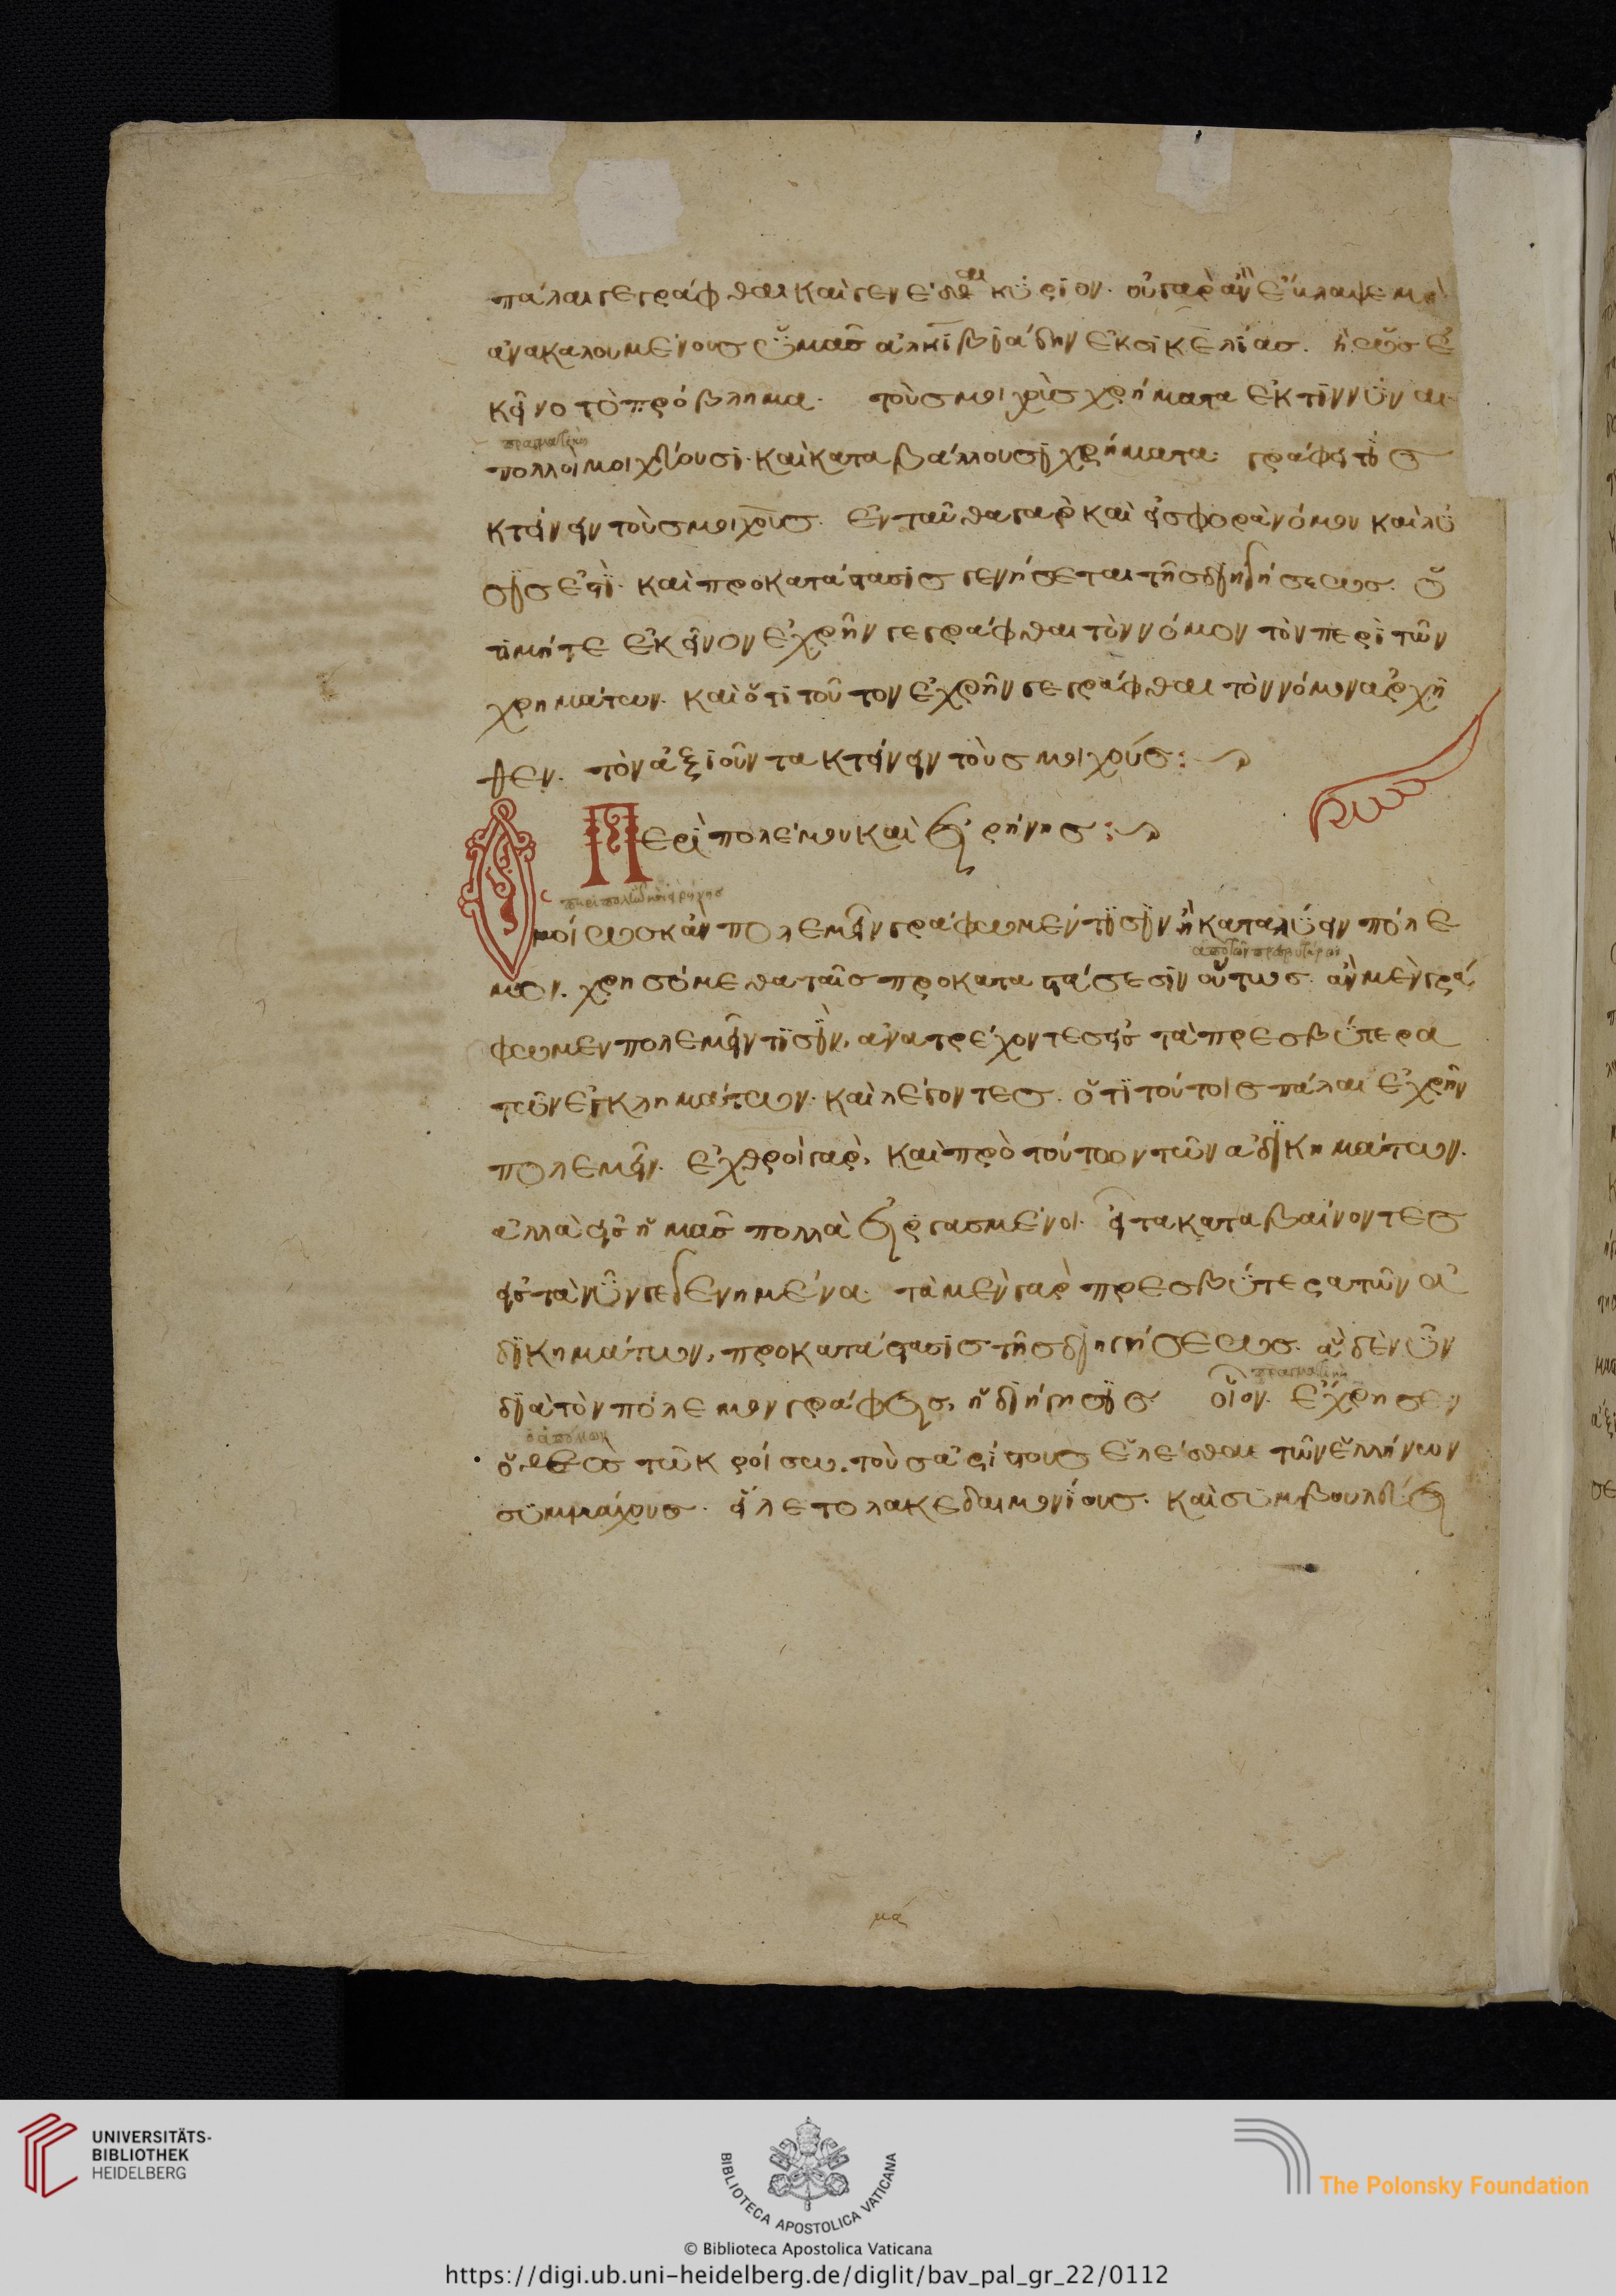 πάλαι γεγράφθαι καὶ γενέσθαι κύριον. οὐ γὰρ ἂν
ἀνακαλουμένους ὑμᾶς ἀλκιβιάδην ἐκ σικελίας. ἢ ὡς ἐ
κεῖνο τὸ πρόβλημα. τοὺς μοιχοὺς χρήματα ἐκτιννύναι.
πολλοὶ μοιχεύουσι. καὶ καταβάλλουσι χρήματα. γράφει τίς
κτείνειν τοὺς μοιχούς. ἐνταῦθα γὰρ καὶ εἰσφορὰ νόμου καὶ λύ
σις ἐστί. καὶ προκατάστασις γενήσεται τῆς διηγήσεως. ὅ
τι μήτε ἐκεῖνον ἐχρῆν γεγράφθαι τὸν νόμον τὸν περὶ τῶν
χρημάτων. καὶ ὅτι τοῦτον ἐχρῆν γεγράφθαι τὸν νόμον ἀρχῆ
θεν. τὸν ἀξιοῦντα κτείνειν τοὺς μοιχούς:
Περὶ πολέμου καὶ εἰρήνης:
περὶ πολέμου καὶ εἰρήνης
Ὁμοίως κἂν πολεμεῖν γράφωμέν τισὶν ἢ καταλύειν πόλε
μον. χρησόμεθα ταῖς προκαταστάσεσιν οὕτως. ἂν μὲν γρά
φωμεν πολεμεῖν τισὶν, ἀνατρέχοντες εἰς τὰ πρεσβύτερα
τῶν ἐγκλημάτων. καὶ λέγοντες. ὅτι τούτοις πάλαι ἐχρῆν
πολεμεῖν. ἐχθροὶ γάρ, καὶ πρὸ τούτων τῶν ἀδικημάτων.
ἀλλὰ εἰς ἡμᾶς πολλὰ εἰργασμένοι. εἶτα καταβαίνοντες
εἰς τὰ νῦν γεγενημένα. τὰ μὲν γὰρ πρεσβύτερα τῶν ἀ
δικημάτων, προκατάστασις τῆς διηγήσεως. ἃ δὲ νῦν
διὰ τὸν πόλεμον γράφεις, ἡ διήγησις. οἷον. ἔχρησεν
ὁ θεὸς τῶ κροίσω. τοὺς ἀρίστους ἑλέσθαι τῶν ἑλλήνων
συμμάχους. εἵλετο λακεδαιμονίους. καὶ συμβουλεύει
μα
UNIVERSITÄTS-
BIBLIOTHEK
HEIDELBERG
BIBLIOTECA APOSTOLICA VATICANA
The Polonsky Foundation
© Biblioteca Apostolica Vaticana
https://digi.ub.uni-heidelberg.de/diglit/bav_pal_gr_22/0112